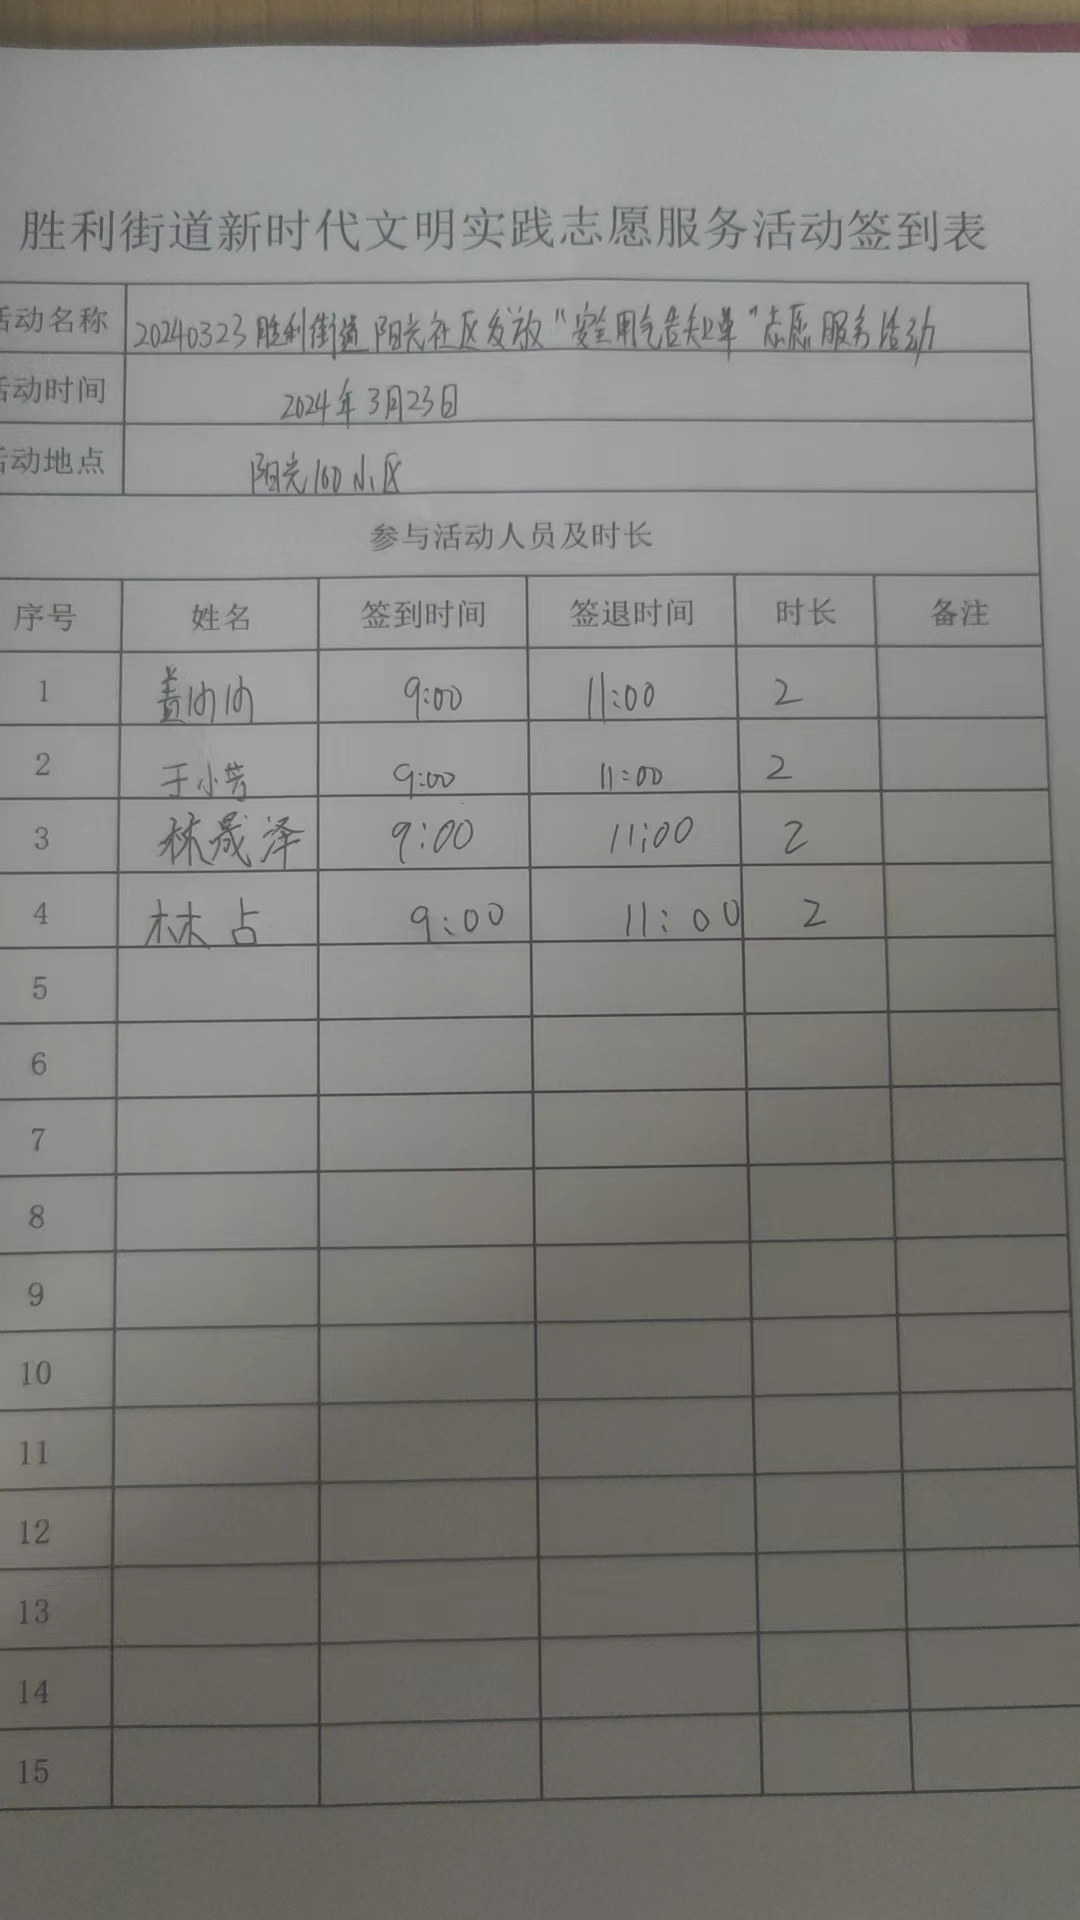 胜利街道新时代文明实践志愿服务活动签到表
活动名称 20240323胜利街道阳光社区发放"安全用气告知单"志愿服务活动
活动时间 2024年3月23日
活动地点 阳光100小区
参与活动人员及时长
序号 姓名 签到时间 签退时间 时长 备注
1 盖 9:00 11:00 2
2 于小芳 9:00 11:00 2
3 林晟泽 9:00 11:00 2
4 林占 9:00 11:00 2
5
6
7
8
9
10
11
12
13
14
15